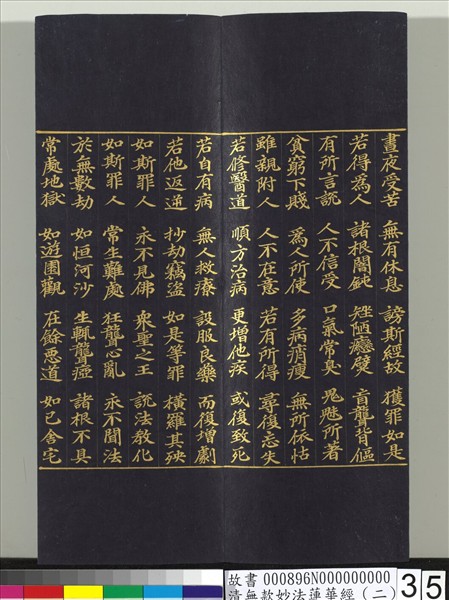 晝夜受苦 無有休息 謗斯經故 獲罪如是
若得為人 諸根闇鈍 矬陋癵躄 盲聾背傴
有所言說 人不信受 口氣常臭 鬼魅所著
貧窮下賤 為人所使 多病痟瘦 無所依怙
雖親附人 人不在意 若有所得 尋復忘失
若修醫道 順方治病 更增他疾 或復致死
若自有病 無人救療 設服良藥 而復增劇
若他返逆 抄劫竊盜 如是等罪 橫羅其殃
如斯罪人 永不見佛 眾聖之王 說法教化
如斯罪人 常生難處 狂聾心亂 永不聞法
於無數劫 如恒河沙 生輒聾瘂 諸根不具
常處地獄 如遊園觀 在餘惡道 如己舍宅
故書 000896N000000000
清無款妙法蓮華經(二) 35